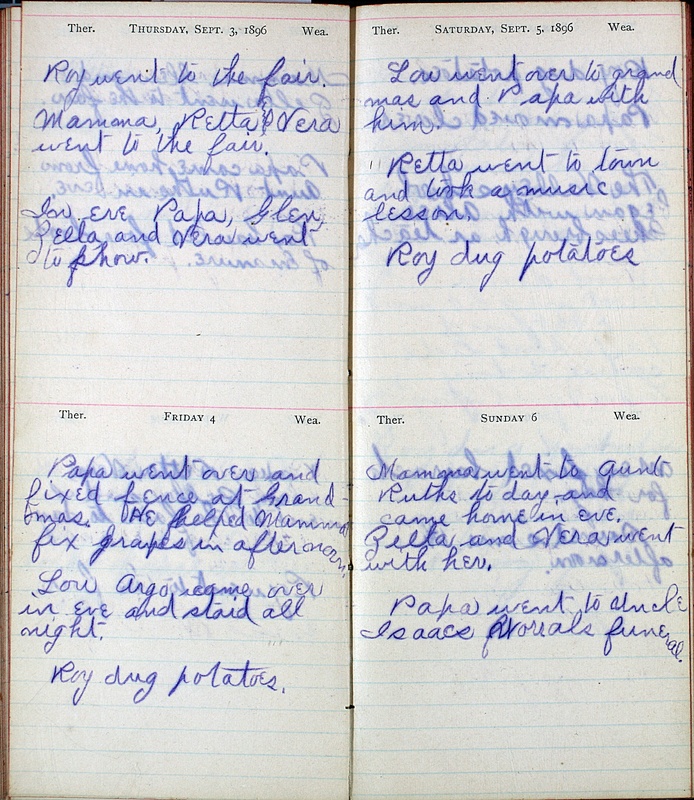 Ther. THURSDAY, SEPT. 3, 1896 Wea.
Roy went to the fair.
Mamma, Retta & Vera
went to the fair.
In eve Papa, Glen,
Zella and Vera went
to show.
Ther. FRIDAY 4 Wea.
Papa went over and
fixed fence at Grand-
mas. He helped Mamma
fix grapes in afternoon.
Lou Argo came over
in eve and staid all
night.
Roy dug potatoes.
Ther. SATURDAY, SEPT. 5, 1896 Wea.
Lou went over to grand
mas and Papa with
him.
Retta went to town
and took a music
lesson.
Roy dug potatoes
Ther. SUNDAY 6 Wea.
Mamma went to Aunt
Ruths to day and
came home in eve.
Zella and Vera went
with her.
Papa went to Uncle
Isaacs funeral.